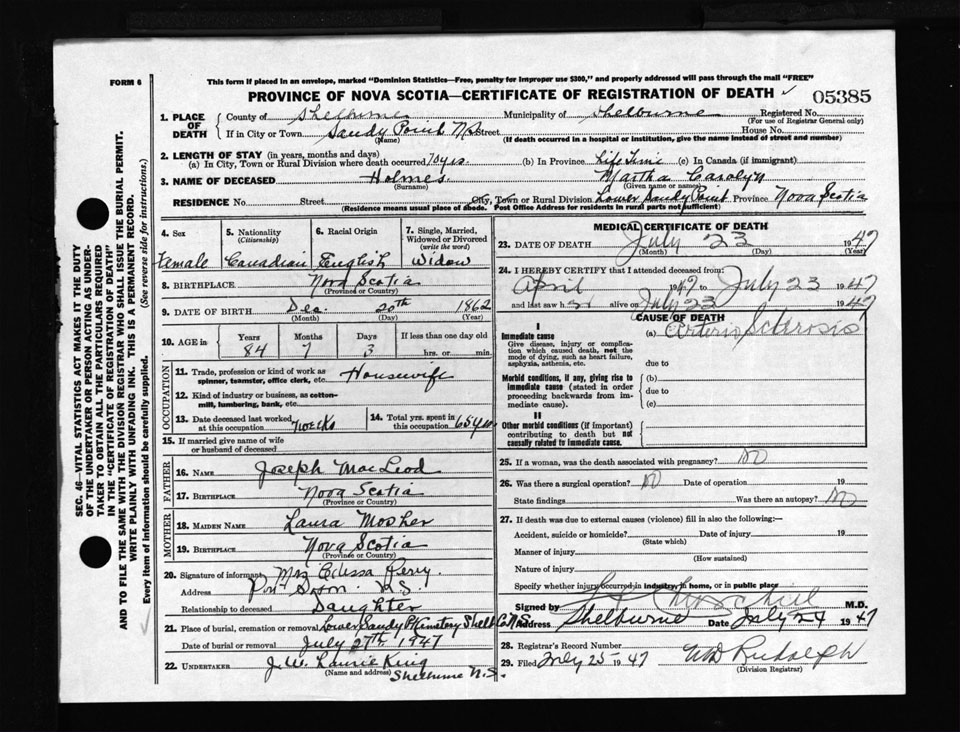 FORM 6
This form if placed in an envelope, marked "Dominion Statistics—Free, penalty for improper use $300," and properly addressed will pass through the mail "FREE"
PROVINCE OF NOVA SCOTIA—CERTIFICATE OF REGISTRATION OF DEATH ✓ 05385
1. PLACE OF DEATH { County of Shelburne Municipality of Shelburne Registered No.
(For use of Registrar General only)
If in City or Town Sandy Point NS Street House No.
(Name) (If death occurred in a hospital or institution, give the name instead of street and number)
2. LENGTH OF STAY (in years, months and days)
(a) In City, Town or Rural Division where death occurred 70 yrs. (b) In Province Life Time (c) In Canada (if immigrant)
3. NAME OF DECEASED Holmes. Martha Carolyn
(Surname) (Given name or names)
RESIDENCE No. Street City, Town or Rural Division Lower Sandy Point Province Nova Scotia
(Residence means usual place of abode. Post Office Address for residents in rural parts not sufficient)
4. Sex
Female
5. Nationality
(Citizenship)
Canadian
6. Racial Origin
English
7. Single, Married, Widowed or Divorced
(write the word)
Widow
8. BIRTHPLACE Nova Scotia
(Province or Country)
9. DATE OF BIRTH Dec. 20th 1862
(Month) (Day) (Year)
10. AGE in Years Months Days If less than one day old
84 7 3 hrs. or min.
OCCUPATION
11. Trade, profession or kind of work as spinner, teamster, office clerk, etc. Housewife
12. Kind of industry or business, as cotton-mill, lumbering, bank, etc.
13. Date deceased last worked at this occupation
14. Total yrs. spent in this occupation 65 yrs
15. If married give name of wife or husband of deceased
FATHER
16. NAME Joseph MacLeod
17. BIRTHPLACE Nova Scotia
(Province or Country)
MOTHER
18. MAIDEN NAME Laura Mosher
19. BIRTHPLACE Nova Scotia
(Province or Country)
20. Signature of informant Mrs Perry.
Address N.S.
Relationship to deceased Daughter
21. Place of burial, cremation or removal Lower Sandy Pt Cemetery Shelb Co N.S.
Date of burial or removal July 27th 1947
22. UNDERTAKER J.W. Laurie King
(Name and address) Shelburne N.S.
MEDICAL CERTIFICATE OF DEATH
23. DATE OF DEATH July 23 1947
(Month) (Day) (Year)
24. I HEREBY CERTIFY that I attended deceased from:
April 1947 to July 23 1947
and last saw her alive on July 23 1947
CAUSE OF DEATH
I
Immediate cause (a) Arterio Sclerosis
Give disease, injury or complication which caused death, not the mode of dying, such as heart failure, asphyxia, asthenia, etc.
due to
Morbid conditions, if any, giving rise to immediate cause (stated in order proceeding backwards from immediate cause).
(b)
due to
(c)
II
Other morbid conditions (if important) contributing to death but not causally related to immediate cause.
25. If a woman, was the death associated with pregnancy? No
26. Was there a surgical operation? No Date of operation 19
State findings Was there an autopsy? No
27. If death was due to external causes (violence) fill in also the following:—
Accident, suicide or homicide? Date of injury 19
(State which)
Manner of injury
(How sustained)
Nature of injury
Specify whether injury occurred in industry, in home, or in public place
Signed by M.D.
Address Shelburne Date July 24 1947
28. Registrar's Record Number
29. Filed July 25 1947 Rudolph
(Division Registrar)
SEC. 46—VITAL STATISTICS ACT MAKES IT THE DUTY
OF THE UNDERTAKER OR PERSON ACTING AS UNDERTAKER TO OBTAIN ALL THE PARTICULARS REQUIRED
IN THE "CERTIFICATE OF REGISTRATION OF DEATH"
AND TO FILE THE SAME WITH THE DIVISION REGISTRAR WHO SHALL ISSUE THE BURIAL PERMIT.
WRITE PLAINLY WITH UNFADING INK. THIS IS A PERMANENT RECORD.
Every item of information should be carefully supplied. (See reverse side for instructions.)